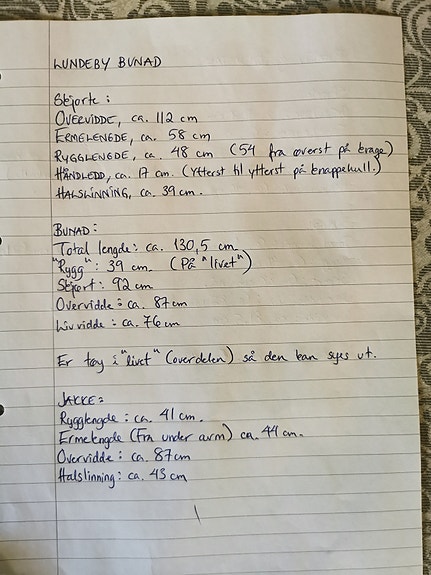 LUNDEBY BUNAD
Skjorte :
OVERVIDDE, ca. 112 cm
ERMELENGDE, ca. 58 cm
RYGGLENGDE, ca. 48 cm (54 fra øverst på krage)
HÅNDLEDD, ca. 17 cm. (Ytterst til ytterst på knappehull.)
HALSLINNING, ca. 39 cm.
BUNAD :
Total lengde : ca. 130,5 cm
"Rygg" : 39 cm. (På "livet")
Skjørt : 92 cm
Overvidde : ca. 87 cm
Livvidde : ca. 76 cm
Er tøy i "livet" (overdelen) så den kan syes ut.
JAKKE :
Rygglengde : ca. 41 cm.
Ermelengde (Fra under arm) ca. 44 cm.
Overvidde : ca. 87 cm
Halslinning : ca. 43 cm